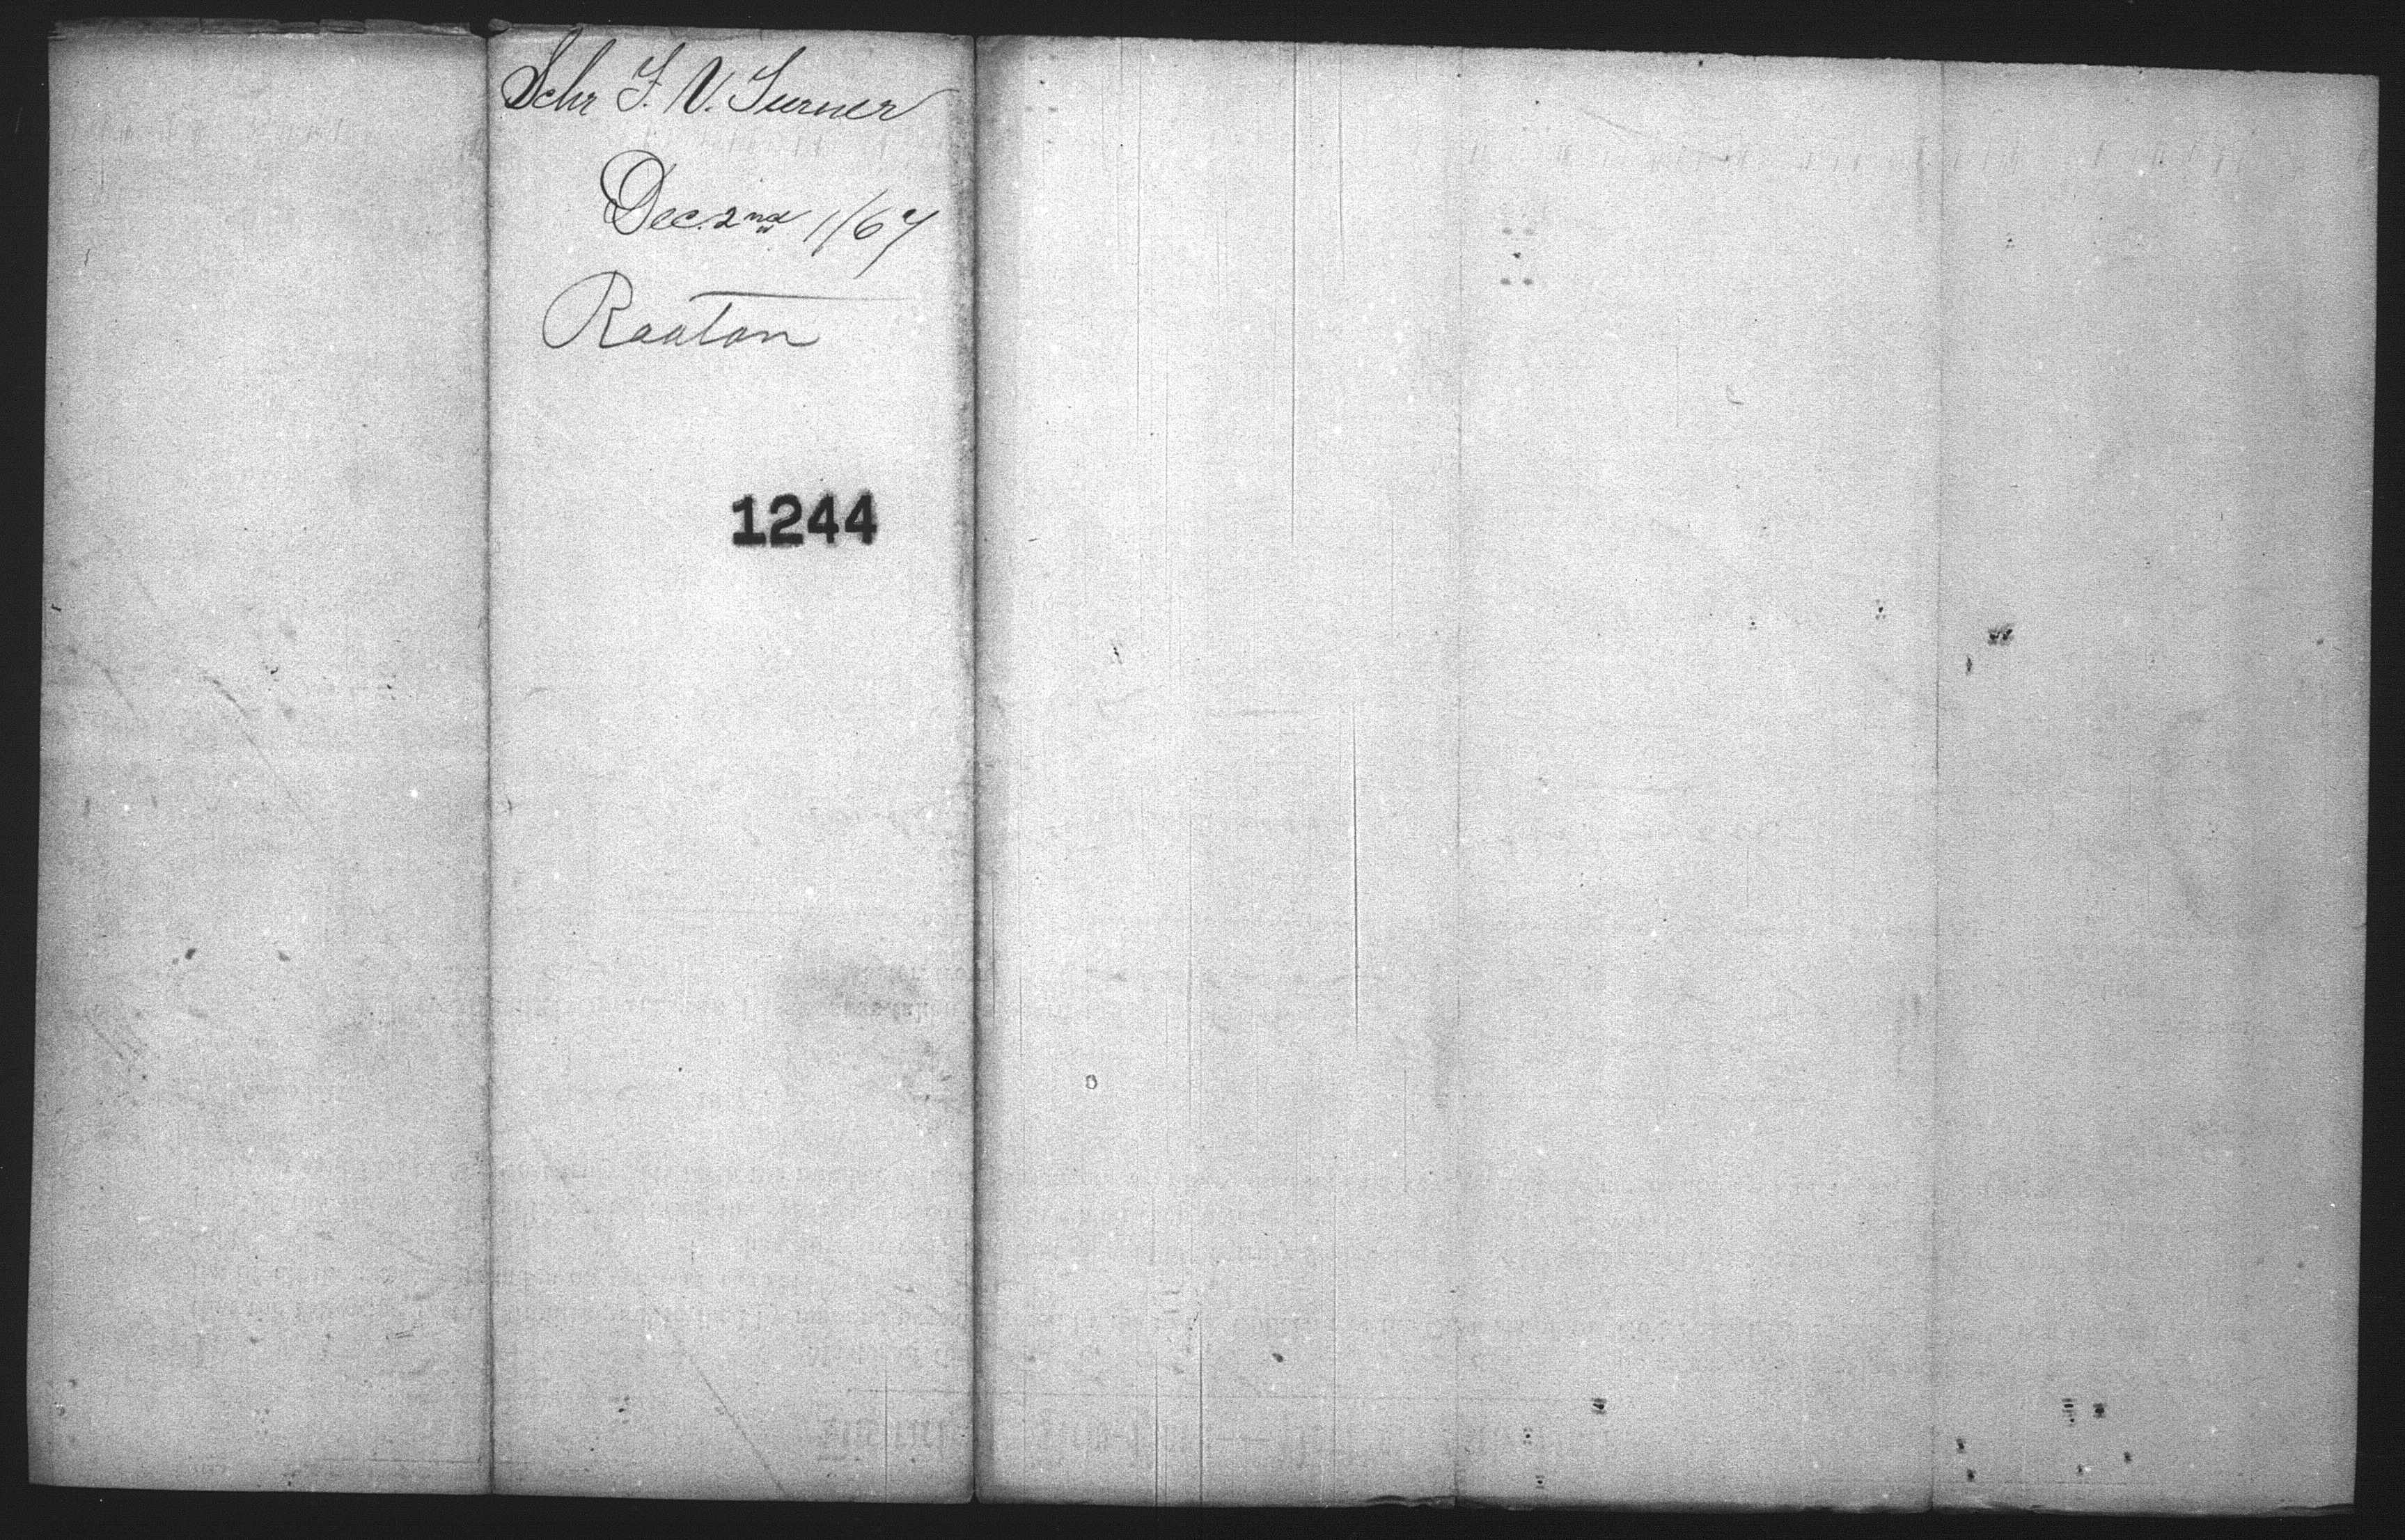 Schr F. V. Turner
Dec. 2nd 1/67
Roatan
1244